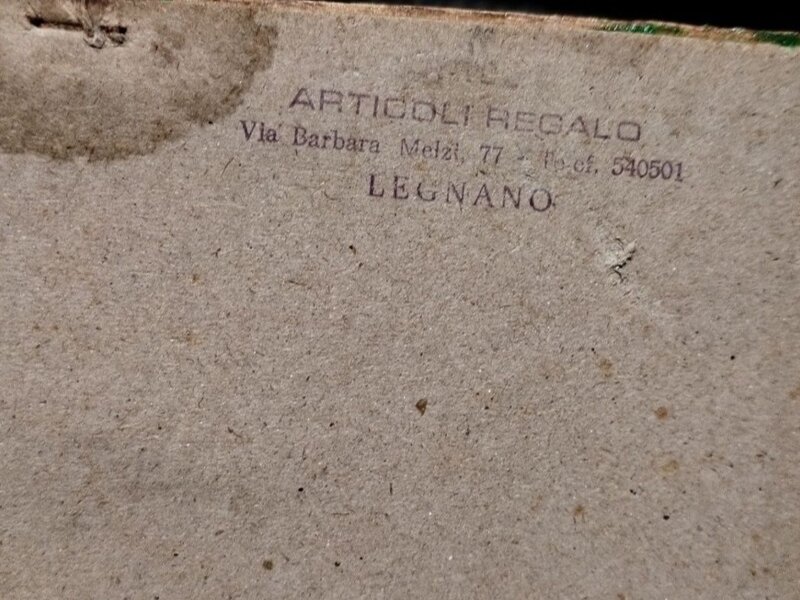 ARTICOLI REGALO
Via Barbara Melzi, 77 - Telef. 540501
LEGNANO